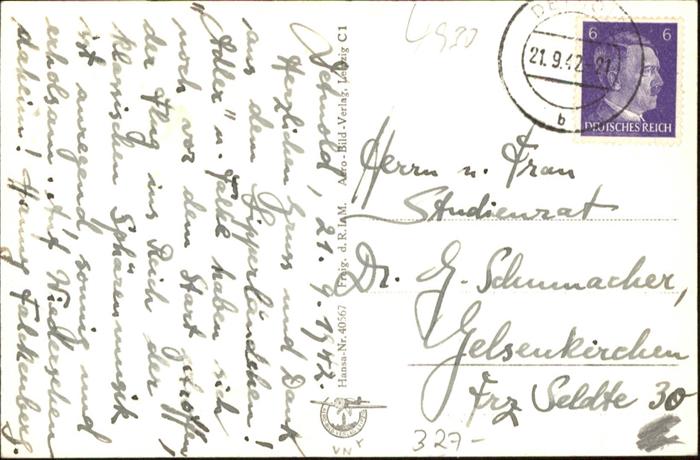 Detmold, 21. 9. 1942.
Herzlichen Gruss und Dank
aus dem Lipperländchen!
"Adler" u. Falke haben sich
noch vor dem Start getroffen,
der Flug ins Reich der
klassischen Sphärenmusik
ist anregend, sonnig und
erholsam. Auf Wiedersehen
daheim! Henny Falckenberg.
Hansa-Nr. 40567 Freig. d. R.L.M. Aero-Bild-Verlag, Leipzig C1
4930
21.9.42-21
b
6 6
DEUTSCHES REICH
Herrn u. Frau
Studienrat
Dr. G. Schumacher,
Gelsenkirchen
Frz Seldte 30
327-
VN